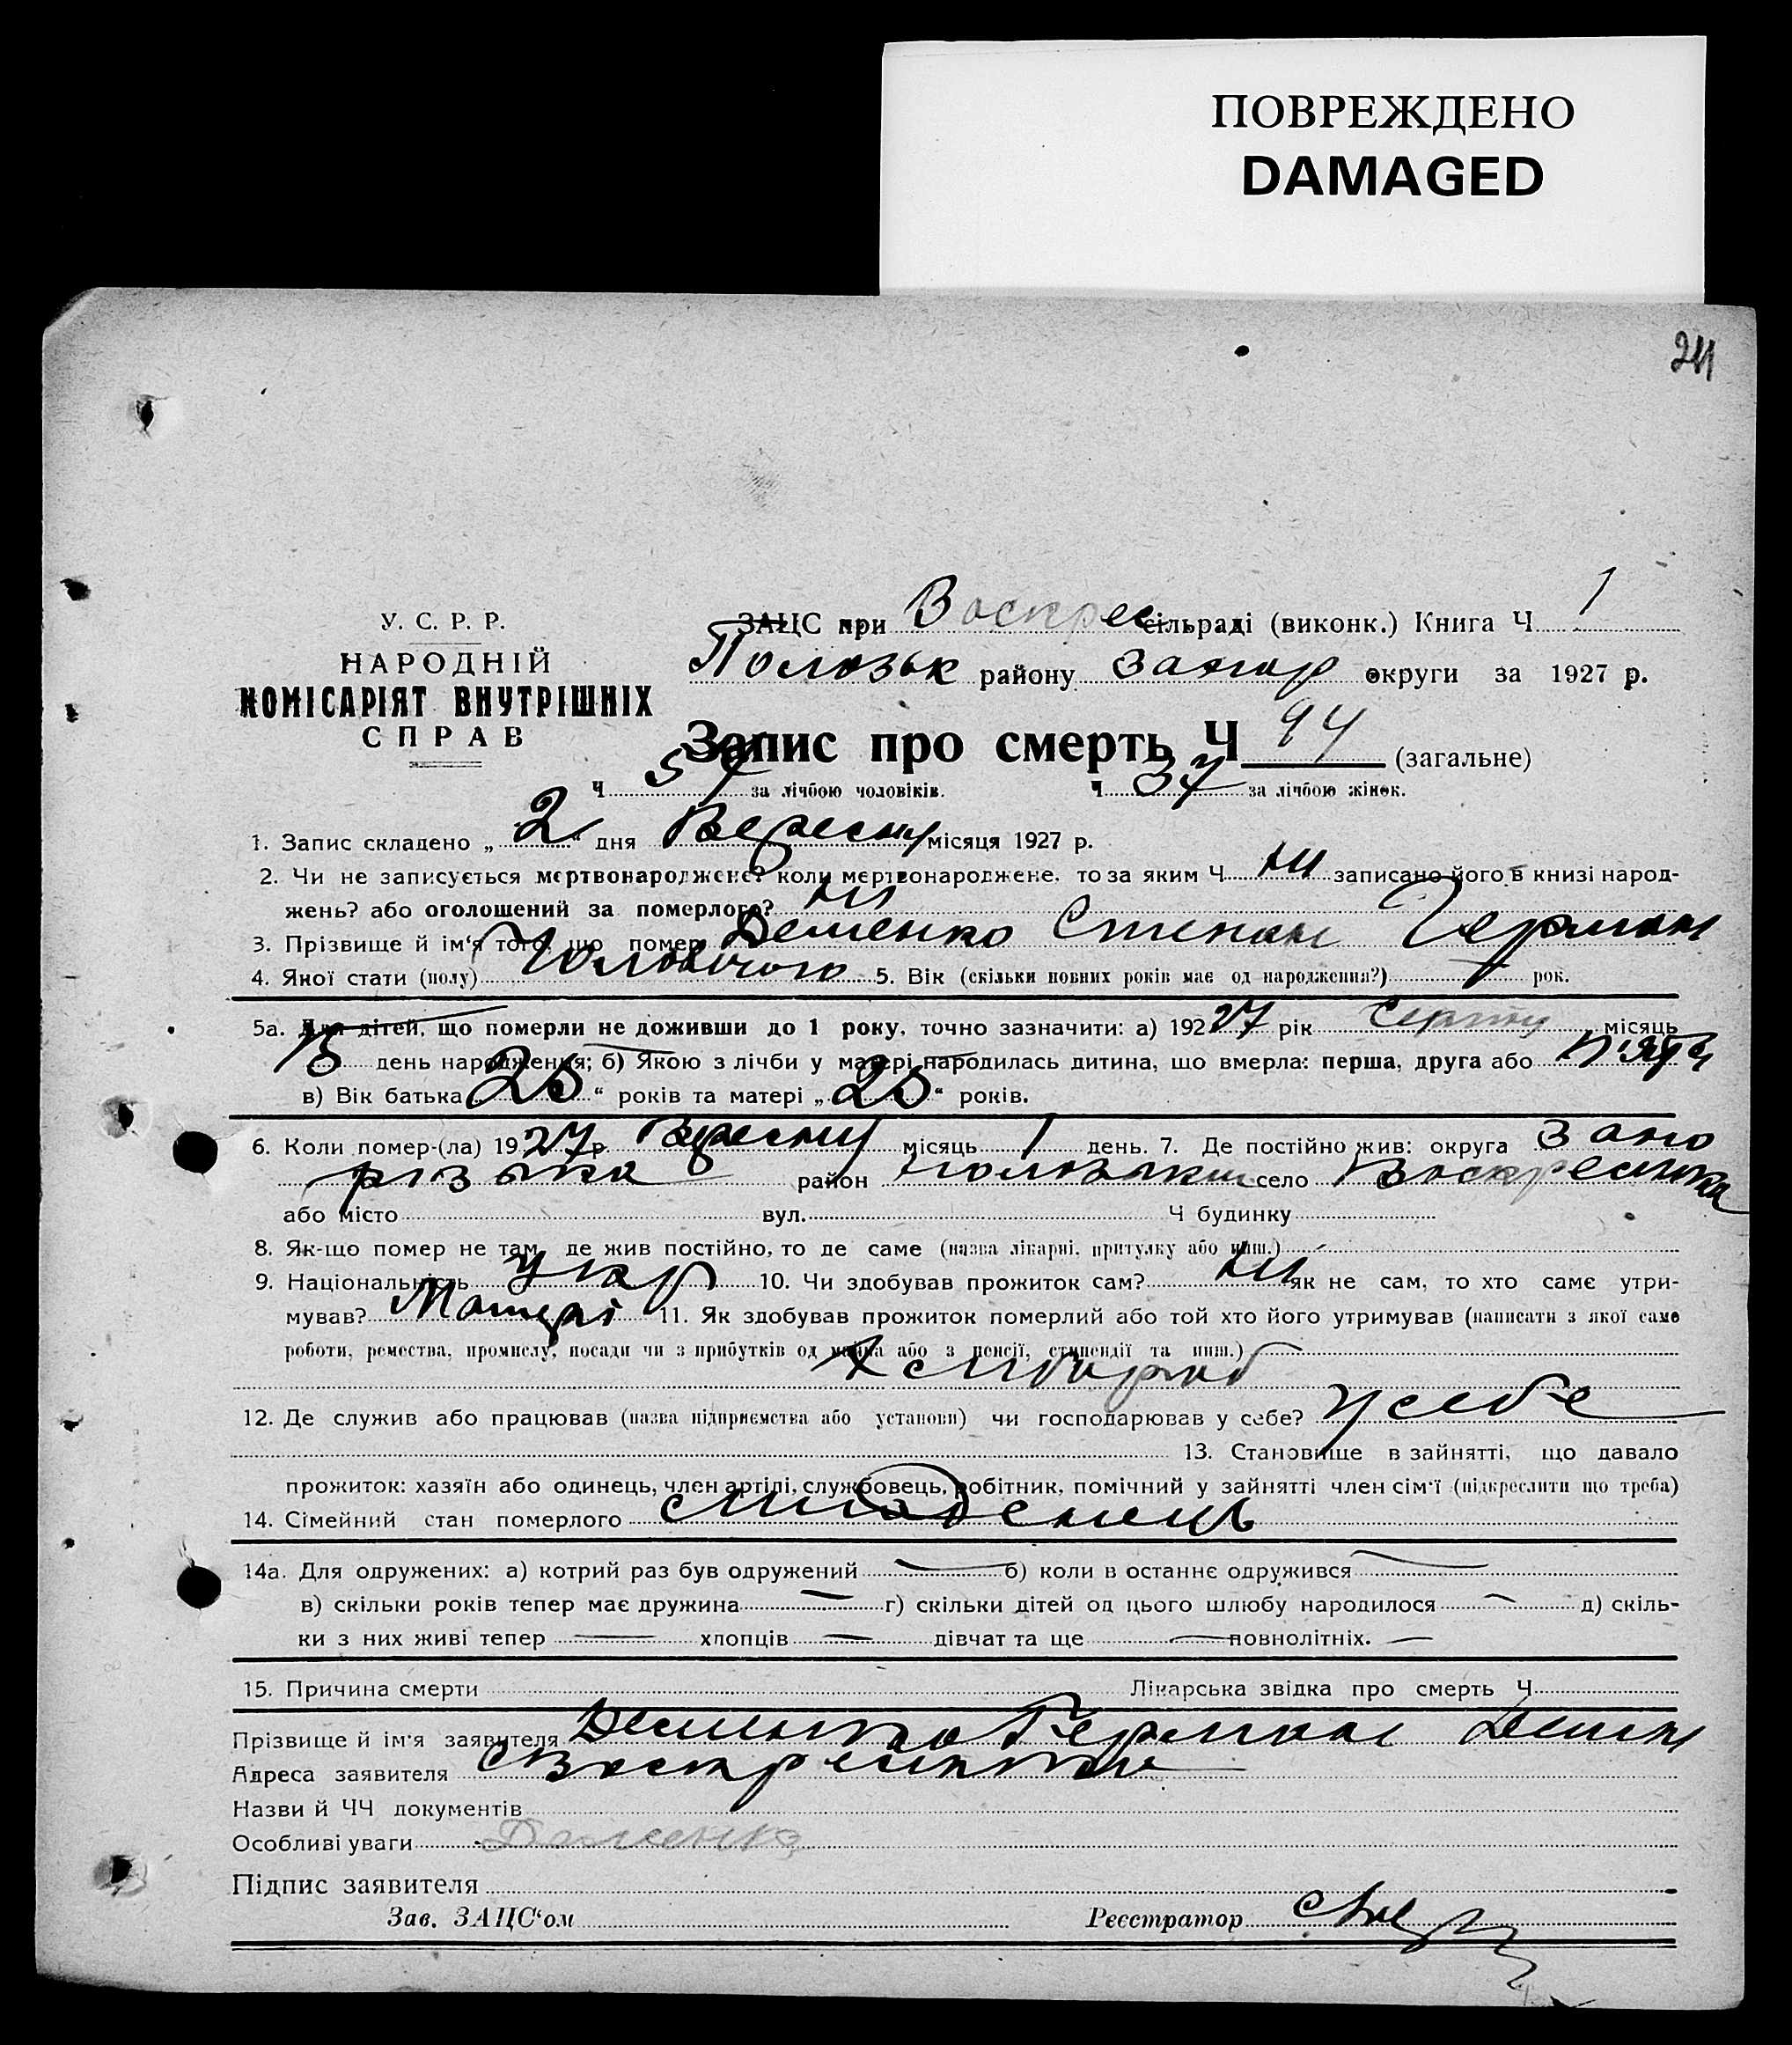 ПОВРЕЖДЕНО
DAMAGED
У. С. Р. Р.
НАРОДНІЙ
КОМІСАРІЯТ ВНУТРІШНІХ
СПРАВ
ЗАЦС при Воскресе сільраді (виконк.) Книга Ч. 1
Пологзьк району Запор округи за 1927 р.
Запис про смерть Ч 94 (загальне)
Ч 57 за лічбою чоловіків. Ч 37 за лічбою жінок.
1. Запис складено „ 2 “ дня Вересня місяця 1927 р.
2. Чи не записується мертвонароджене? коли мертвонароджене, то за яким Ч ні записано його в книзі народ-
жень? або оголошений за померлого? ні
3. Прізвище й ім‘я того, що помер Деменко Степан Герман
4. Якої стати (полу) Чоловічого 5. Вік (скільки повних років має од народження?) рок.
5а. Для дітей, що померли не доживши до 1 року, точно зазначити: а) 1927 рік Серпня місяць
день народження; б) Якою з лічби у матері народилась дитина, що вмерла: перша, друга або п'ята
в) Вік батька “ років та матері „ “ років.
6. Коли помер-(ла) 1927 р Вересня місяць 1 день. 7. Де постійно жив: округа Запо
різька район село Воскресенка
або місто вул. Ч будинку
8. Як-що помер не там, де жив постійно, то де саме (назва лікарні, притулку або инш.)
9. Національність Укр 10. Чи здобував прожиток сам? ні як не сам, то хто саме утри-
мував? Матері 11. Як здобував прожиток померлий або той хто його утримував (написати з якої саме
роботи, ремества, промислу, посади чи з прибутків од майна або з пенсії, стипендії та инш.)
Хлібороб
12. Де служив або працював (назва підприємства або установи) чи господарював у себе? у себе
13. Становище в зайнятті, що давало
прожиток: хазяїн або одинець, член артілі, службовець, робітник, помічний у зайнятті член сім‘ї (підкреслити що треба)
14. Сімейний стан померлого младенець
14а. Для одружених: а) котрий раз був одружений — б) коли в останнє одружився —
в) скільки років тепер має дружина — г) скільки дітей од цього шлюбу народилося — д) скіль-
ки з них живі тепер — хлопців — дівчат та ще — повнолітніх. —
15. Причина смерти Лікарська звідка про смерть Ч
Прізвище й ім‘я заявителя Деменко Герман
Адреса заявителя с Воскресенка
Назви й ЧЧ документів
Особливі уваги Деменко
Підпис заявителя
Зав. ЗАЦС‘ом Реєстратор